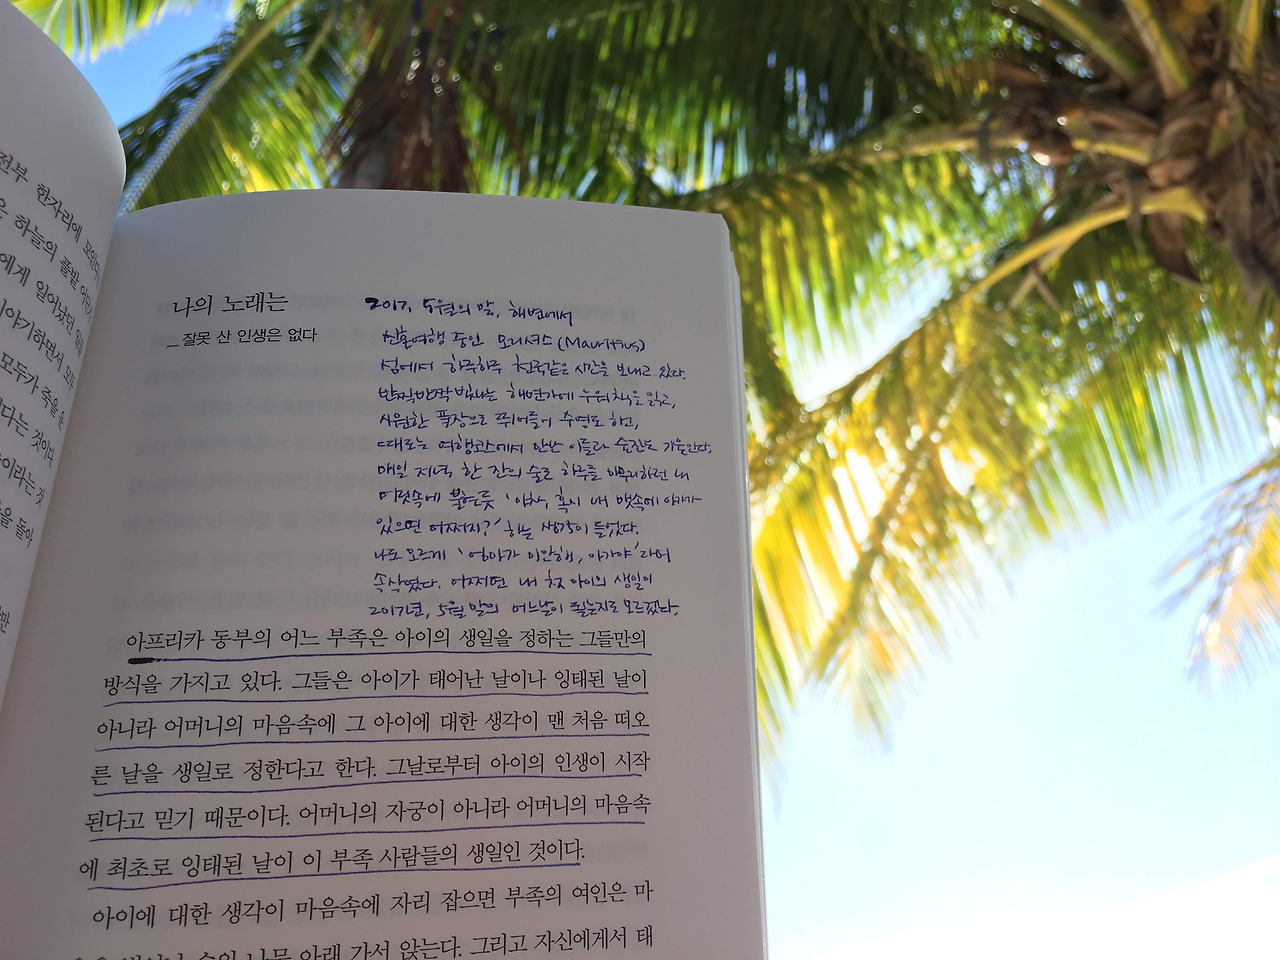 전부 한자리에 모인다
은 하늘의 풀밭
에게 일어났던
이야기하면서 모두
모두가 죽을
다는 것이다
이라는 것
을 돌아
나의 노래는
_ 잘못 산 인생은 없다
2017. 5월의 말, 해변에서
신혼여행 중인 모리셔스(Mauritius)
섬에서 하루하루 천국같은 시간을 보내고 있다.
반짝반짝 빛나는 해변가에 누워 책을 읽고,
시원한 풀장으로 뛰어들어 수영도 하고,
때로는 여행코스에서 만난 이들과 술잔도 기울인다.
매일 저녁 한 잔의 술로 하루를 마무리하던 내
머릿속에 불현듯 '아차, 혹시 내 뱃속에 아가가
있으면 어쩌지?' 하는 생각이 들었다.
나도 모르게 '엄마가 미안해, 아가야'라며
속삭였다. 어쩌면 내 첫 아이의 생일이
2017년, 5월 말의 어느날이 될는지도 모르겠다.
아프리카 동부의 어느 부족은 아이의 생일을 정하는 그들만의
방식을 가지고 있다. 그들은 아이가 태어난 날이나 잉태된 날이
아니라 어머니의 마음속에 그 아이에 대한 생각이 맨 처음 떠오
른 날을 생일로 정한다고 한다. 그날로부터 아이의 인생이 시작
된다고 믿기 때문이다. 어머니의 자궁이 아니라 어머니의 마음속
에 최초로 잉태된 날이 이 부족 사람들의 생일인 것이다.
아이에 대한 생각이 마음속에 자리 잡으면 부족의 여인은 마
나무 아래 가서 앉는다. 그리고 자신에게서 태